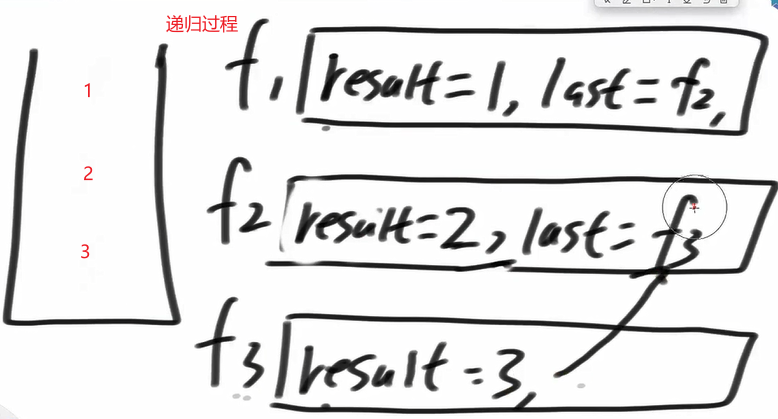 递归过程
1
2
3
f1 result=1, last=f2,
f2 result=2, last=f3
f3 result=3,